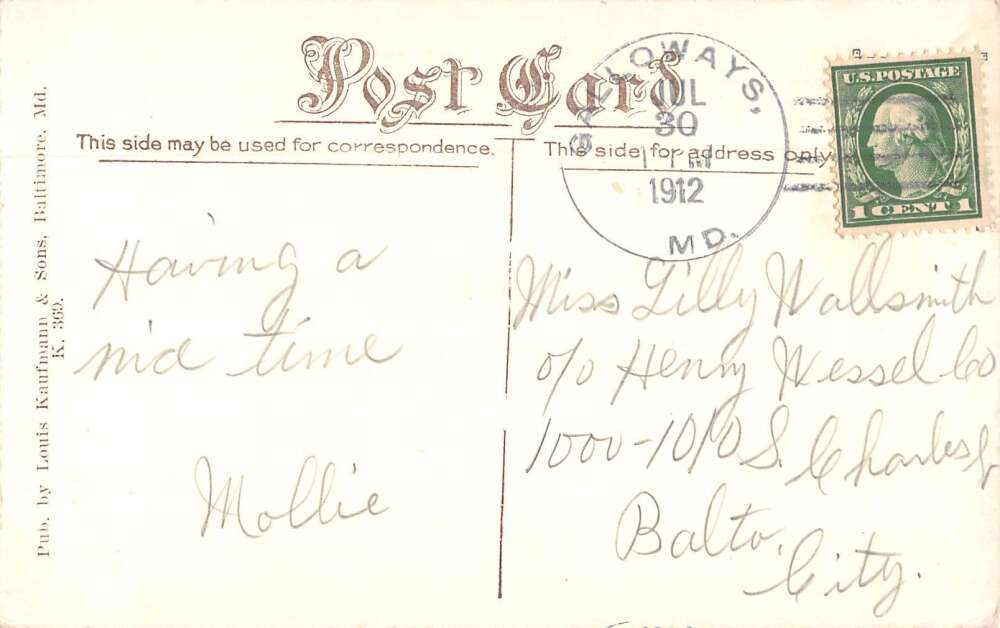 Post Card
This side may be used for correspondence.
This side for address only.
GALLOWAYS,
JUL
30
1 PM
1912
MD.
U.S. POSTAGE
1 CENT 1
Pub. by Louis Kaufmann & Sons, Baltimore, Md.
K. 369.
Having a
nid time
Mollie
Miss Lilly Wallsmith
c/o Henry Wessel Co
1000-1010 S. Charles St
Balto.
City.